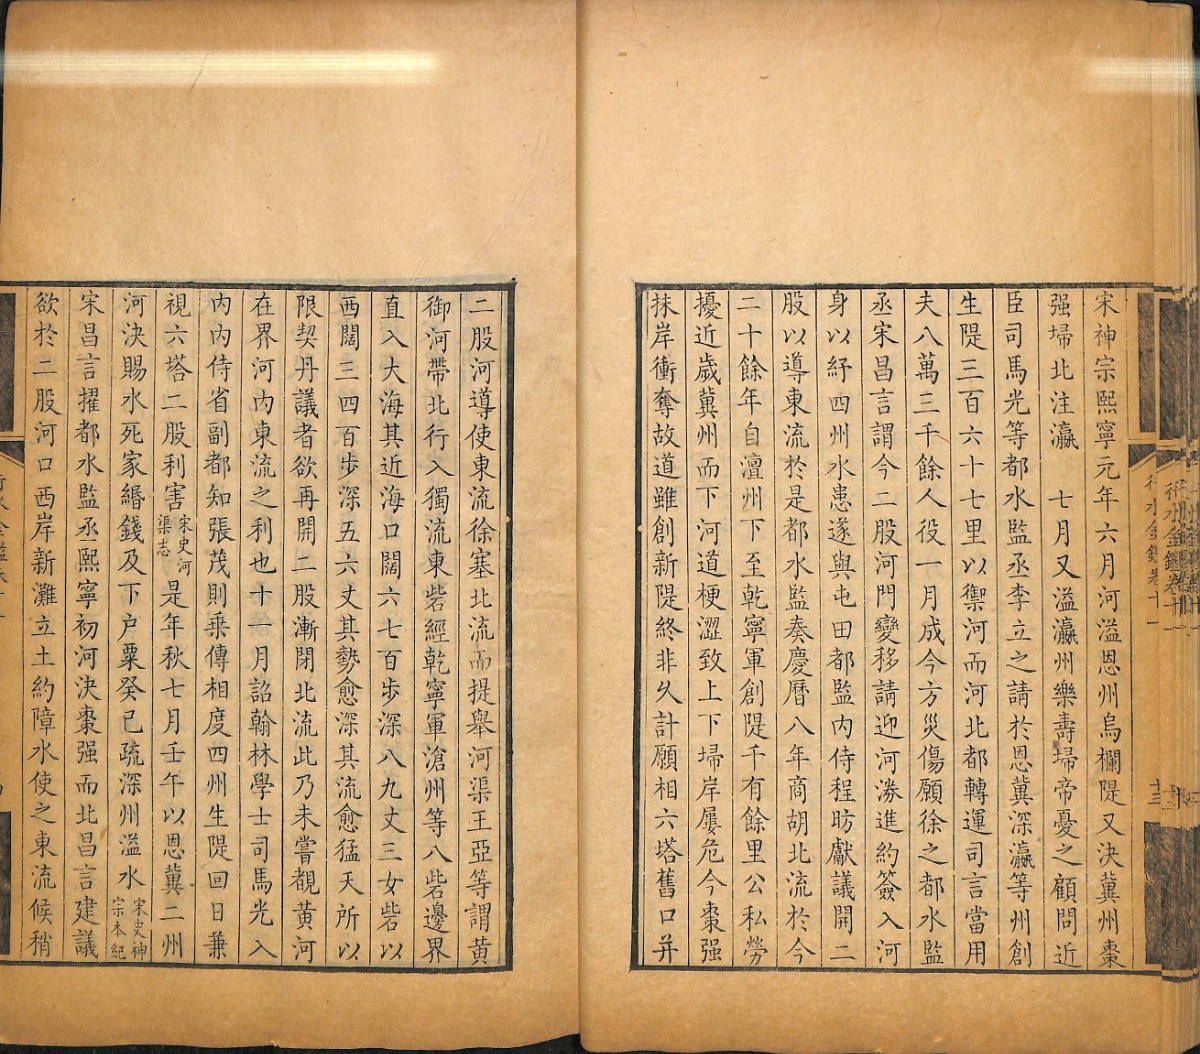 宋神宗熙寧元年六月河溢恩州烏欄隄又決冀州棗
强埽北注瀛　七月又溢瀛州樂壽埽帝憂之顧問近
臣司馬光等都水監丞李立之請於恩冀深瀛等州創
生隄三百六十七里以禦河而河北都轉運司言當用
夫八萬三千餘人役一月成今方災傷願徐之都水監
丞宋昌言謂今二股河門變移請迎河港進約簽入河
身以紓四州水患遂與屯田都監內侍程昉獻議開二
股以導東流於是都水監奏慶曆八年商胡北流於今
二十餘年自澶州下至乾寧軍創隄千有餘里公私勞
擾近歲冀州而下河道梗澀致上下埽岸屢危今棗强
抹岸衝奪故道雖創新隄終非久計願相六塔舊口并
二股河導使東流徐塞北流而提舉河渠王亞等謂黃
御河帶北行入獨流東砦經乾寧軍滄州等八砦邊界
直入大海其近海口闊六七百步深八九丈三女砦以
西闊三四百步深五六丈其勢愈深其流愈猛天所以
限契丹議者欲再開二股漸閉北流此乃未嘗覩黃河
在界河內東流之利也十一月詔翰林學士司馬光入
內內侍省副都知張茂則乘傳相度四州生隄回日兼
視六塔二股利害宋史河渠志是年秋七月壬午以恩冀二州
河決賜水死家緡錢及下户粟癸巳疏深州溢水宋史神宗本紀
宋昌言擢都水監丞熙寧初河決棗强而北昌言建議
欲於二股河口西岸新灘立土約障水使之東流候稍
行水金鑑卷十一
十三